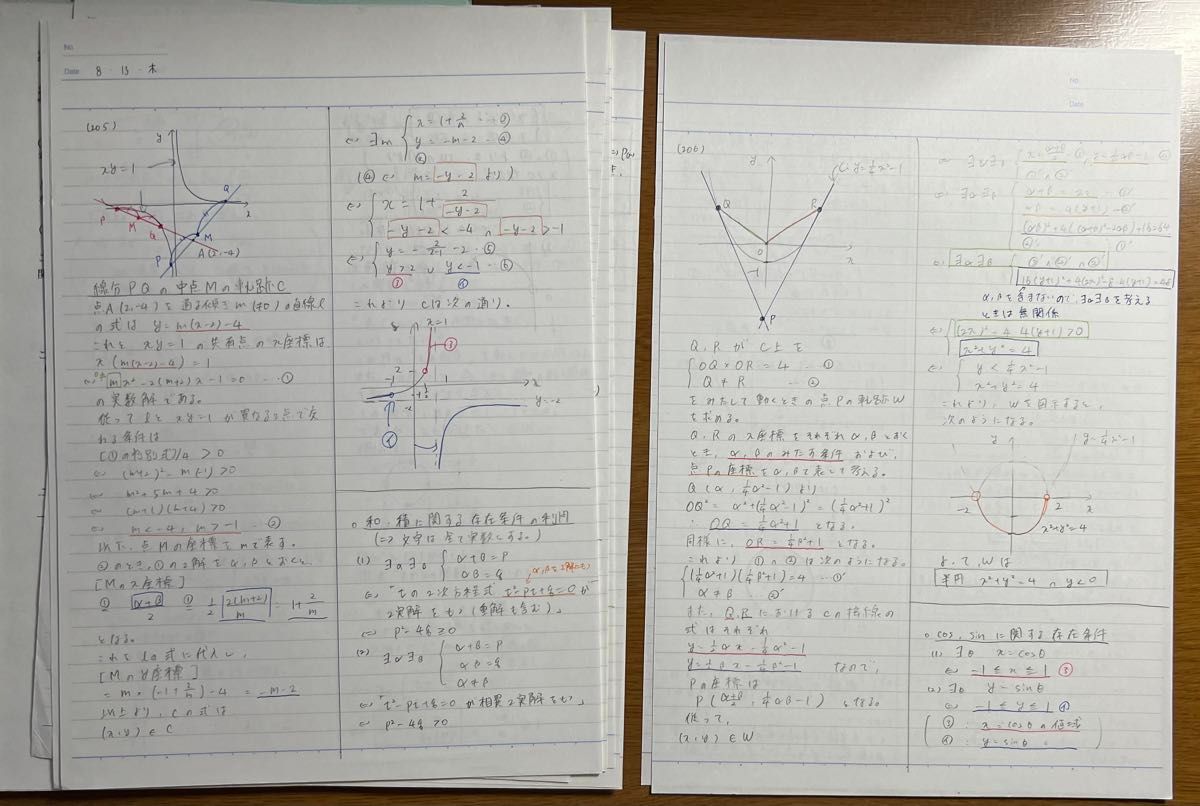 No
Date 8 · 13 · 木
(205)
y
xy=1
Q
x
P
M
Q
M
P
A(2,-4)
線分PQの中点Mの軌跡C
点A(2,-4)を通る傾きm(≠0)の直線l
の式は y=m(x-2)-4
これと xy=1 の共有点のx座標は
x(m(x-2)-4)=1
⇔ mx²-2(m+2)x-1=0 …①
の実数解である。
従ってlとxy=1が異なる2点で交
わる条件は
[①の判別式]/4 > 0
⇔ (m+2)²-m(-1)>0
⇔ m²+5m+4>0
⇔ (m+1)(m+4)>0
⇔ m<-4, m>-1 …②
以下、点Mの座標をmで表す。
②のとき、①の2解をα,βとおくと、
[Mのx座標]
= α+β/2 = 1/2 · 2(m+2)/m = 1+2/m
となる。
これをlの式に代入し、
[Mのy座標]
= m·(-1+2/m)-4 = -m-2
以上より、Cの式は
(x,y)∈C
⇔ ∃m { x=1+2/m …③
y=-m-2 …④
②
(④⇔ m=-y-2 より)
⇔ { x=1+2/-y-2
-y-2<-4 ∩ -y-2>-1
⇔ { y=-2/x-1 -2 …⑤
y>2 ∪ y<-1 …⑥
これより Cは次の通り。
x=1
2
-1
1
x
-2
y=-2
○和、積に関する存在条件の利用
(⇒文字は全て実数とする。)
(1) ∃α∃β { α+β=p
αβ=q
α,βを2解にもつ
⇔「tの2次方程式 t²-pt+q=0 が
2実解をもつ(重解も含む)」
⇔ p²-4q≧0
(2) ∃α∃β { α+β=p
αβ=q
α≠β
⇔「t²-pt+q=0 が相異2実解をもつ」
⇔ p²-4q>0
No
Date
(206)
y
C: y=1/4x²-1
Q
R
0
x
-1
P
Q,RがC上を
{ OQ×OR=4 …①
Q≠R …②
をみたして動くときの点Pの軌跡W
を求める。
Q,Rのx座標をそれぞれα,βとおく
とき、α,βのみたす条件 および、
点Pの座標をα,βで表して考える。
Q(α, 1/4α²-1)より
OQ²=α²+(1/4α²-1)²=(1/4α²+1)²
∴ OQ=1/4α²+1 となる。
同様に、OR=1/4β²+1 となる。
これより①∩②は次のようになる。
{ (1/4α²+1)(1/4β²+1)=4 …①'
α≠β …②'
また、Q,RにおけるCの接線の
式はそれぞれ
y=1/2αx-1/4α²-1
y=1/2βx-1/4β²-1 なので、
Pの座標は
P(α+β/2, 1/4αβ-1) となる。
従って、
(x,y)∈W
⇔ ∃α∃β { x=α+β/2 …③, y=1/4αβ-1 …④
①', ②'
⇔ ∃α∃β { α+β=2x …③'
αβ=4(y+1) …④'
(αβ)²+4{(α+β)²-2αβ}+16=64
②' ①'
⇔ ∃α∃β { ③'∩④'∩②'
16(y+1)²+4(2x)²-8·4(y+1)=48
α,βを含まないので、∃α∃βを考える
ときは無関係
⇔ { (2x)²-4·4(y+1)>0
x²+y²=4
⇔ { y<1/4x²-1
x²+y²=4
これより、Wを図示すると、
次のようになる。
y
y=1/4x²-1
-2
2
x
x²+y²=4
よって、Wは
半円 x²+y²=4 ∩ y<0
○cos, sinに関する存在条件
(1) ∃θ x=cosθ
⇔ -1≦x≦1 ③
(2) ∃θ y=sinθ
⇔ -1≦y≦1 ④
(③: x=cosθの値域
④: y=sinθ 〃)